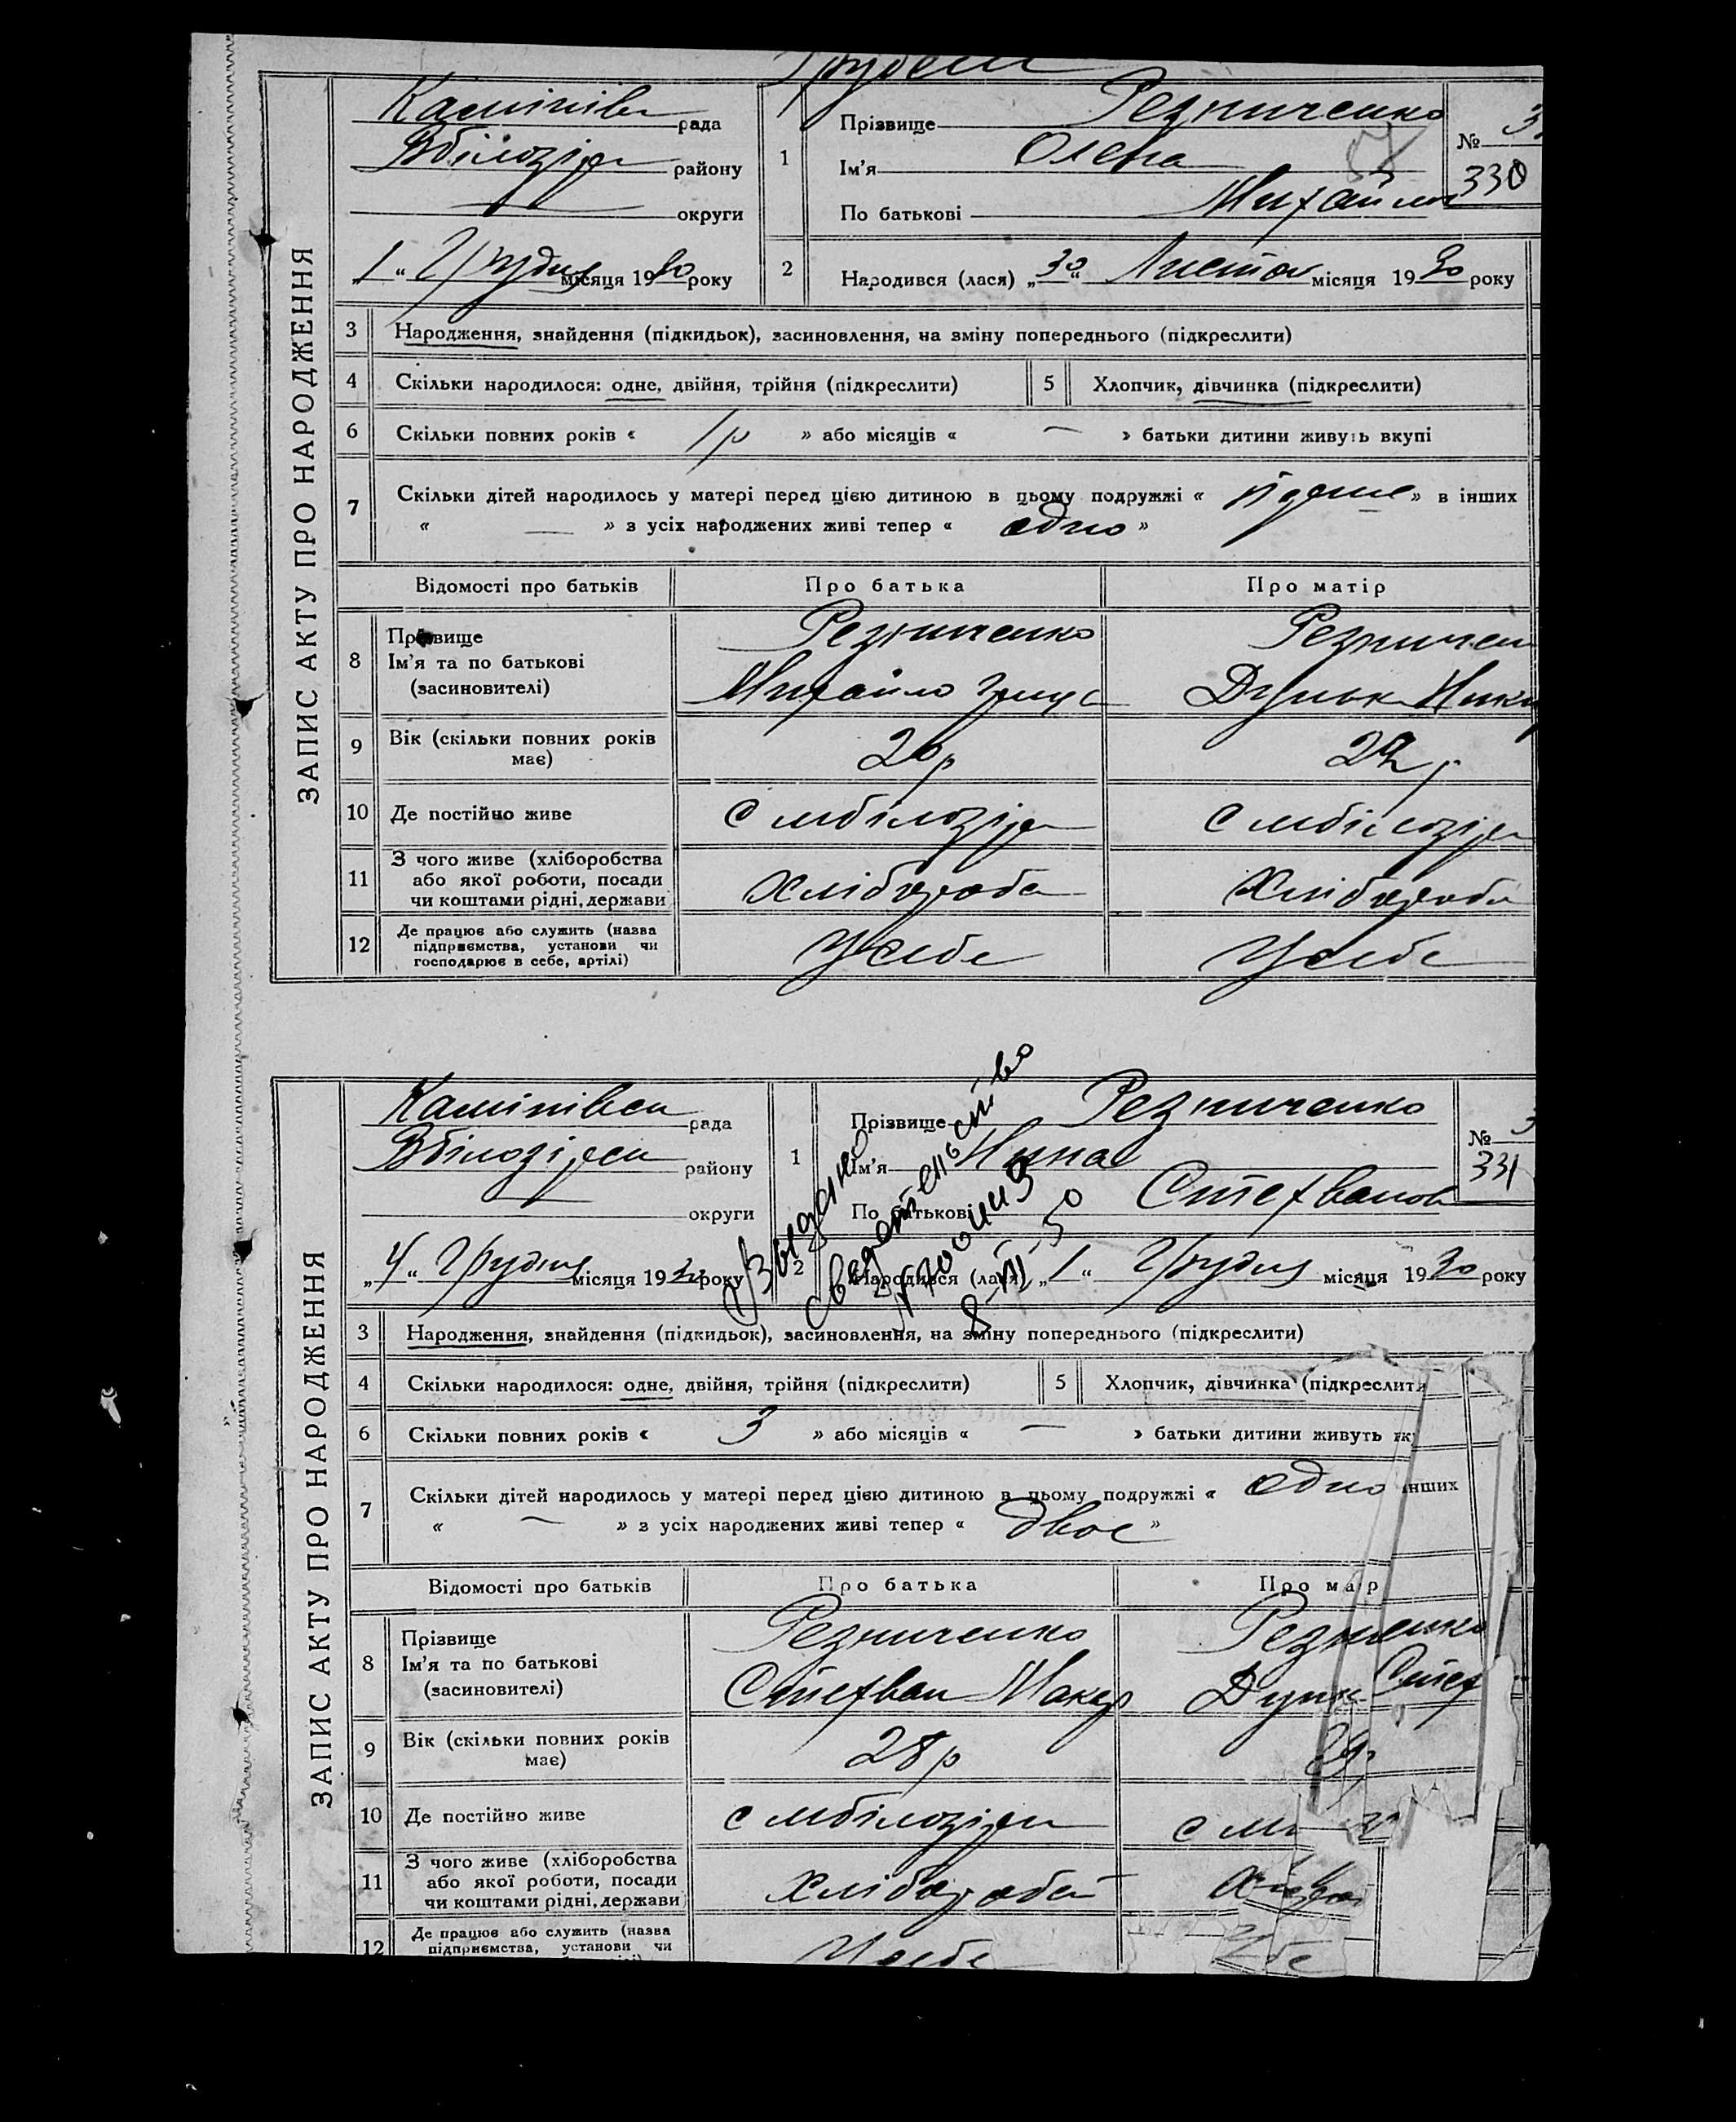 ЗАПИС АКТУ ПРО НАРОДЖЕННЯ
рада
Вбілозір району
округи
„1“ Грудня місяця 1930 року
1
Прізвище Резниченко
Ім'я Олена
По батькові Михайли
№ 3
330
2
Народився (лася) „30“ Листоп місяця 1930 року
3 Народження, знайдення (підкидьок), засиновлення, на зміну попереднього (підкреслити)
4 Скільки народилося: одне, двійня, трійня (підкреслити)
5 Хлопчик, дівчинка (підкреслити)
6 Скільки повних років « 1 р » або місяців « — » батьки дитини живуть вкупі
7 Скільки дітей народилось у матері перед цією дитиною в цьому подружжі « » в інших
« — » з усіх народжених живі тепер « одно »
Відомості про батьків Про батька Про матір
8 Прізвище
Ім'я та по батькові
(засиновителі)
Резниченко
Михайло Гриц
Резничен
Дуньк Ники
9 Вік (скільки повних років має) 20 р
10 Де постійно живе с мбілозір с мбілозір
11 З чого живе (хліборобства
або якої роботи, посади
чи коштами рідні, держави
Хлібороба Хлібороба
12 Де працює або служить (назва
підприємства, установи чи
господарює в себе, артілі)
Усебе Усебе
ЗАПИС АКТУ ПРО НАРОДЖЕННЯ
рада
Вбілозірськ району
округи
„4“ Грудня місяця 1930 року
1
Прізвище Резниченко
Ім'я Нина
По батькові Стефванов
№ 3
331
2
Народився (лася) „1“ Грудня місяця 1930 року
Выдано
свидетельство
8-III-50
3 Народження, знайдення (підкидьок), засиновлення, на зміну попереднього (підкреслити)
4 Скільки народилося: одне, двійня, трійня (підкреслити)
5 Хлопчик, дівчинка (підкреслити
6 Скільки повних років « 3 » або місяців « — » батьки дитини живуть вк
7 Скільки дітей народилось у матері перед цією дитиною в цьому подружжі « одно інших
« — » з усіх народжених живі тепер « двое »
Відомості про батьків Про батька Про матір
8 Прізвище
Ім'я та по батькові
(засиновителі)
Резниченко
Стефван Макар
Резниченко
Дуньк Стеф
9 Вік (скільки повних років має) 28 р
10 Де постійно живе с мбілозір с м
11 З чого живе (хліборобства
або якої роботи, посади
чи коштами рідні, держави
Хлібороб
12 Де працює або служить (назва
підприємства, установи чи
Усебе